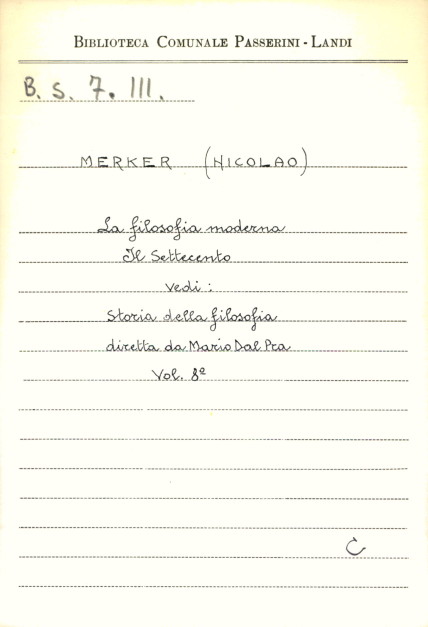 BIBLIOTECA COMUNALE PASSERINI - LANDI
B. S. 7. III.
MERKER (NICOLAO)
La filosofia moderna
Il Settecento
vedi :
Storia della filosofia
diretta da Mario Dal Pra
Vol. 8º
C